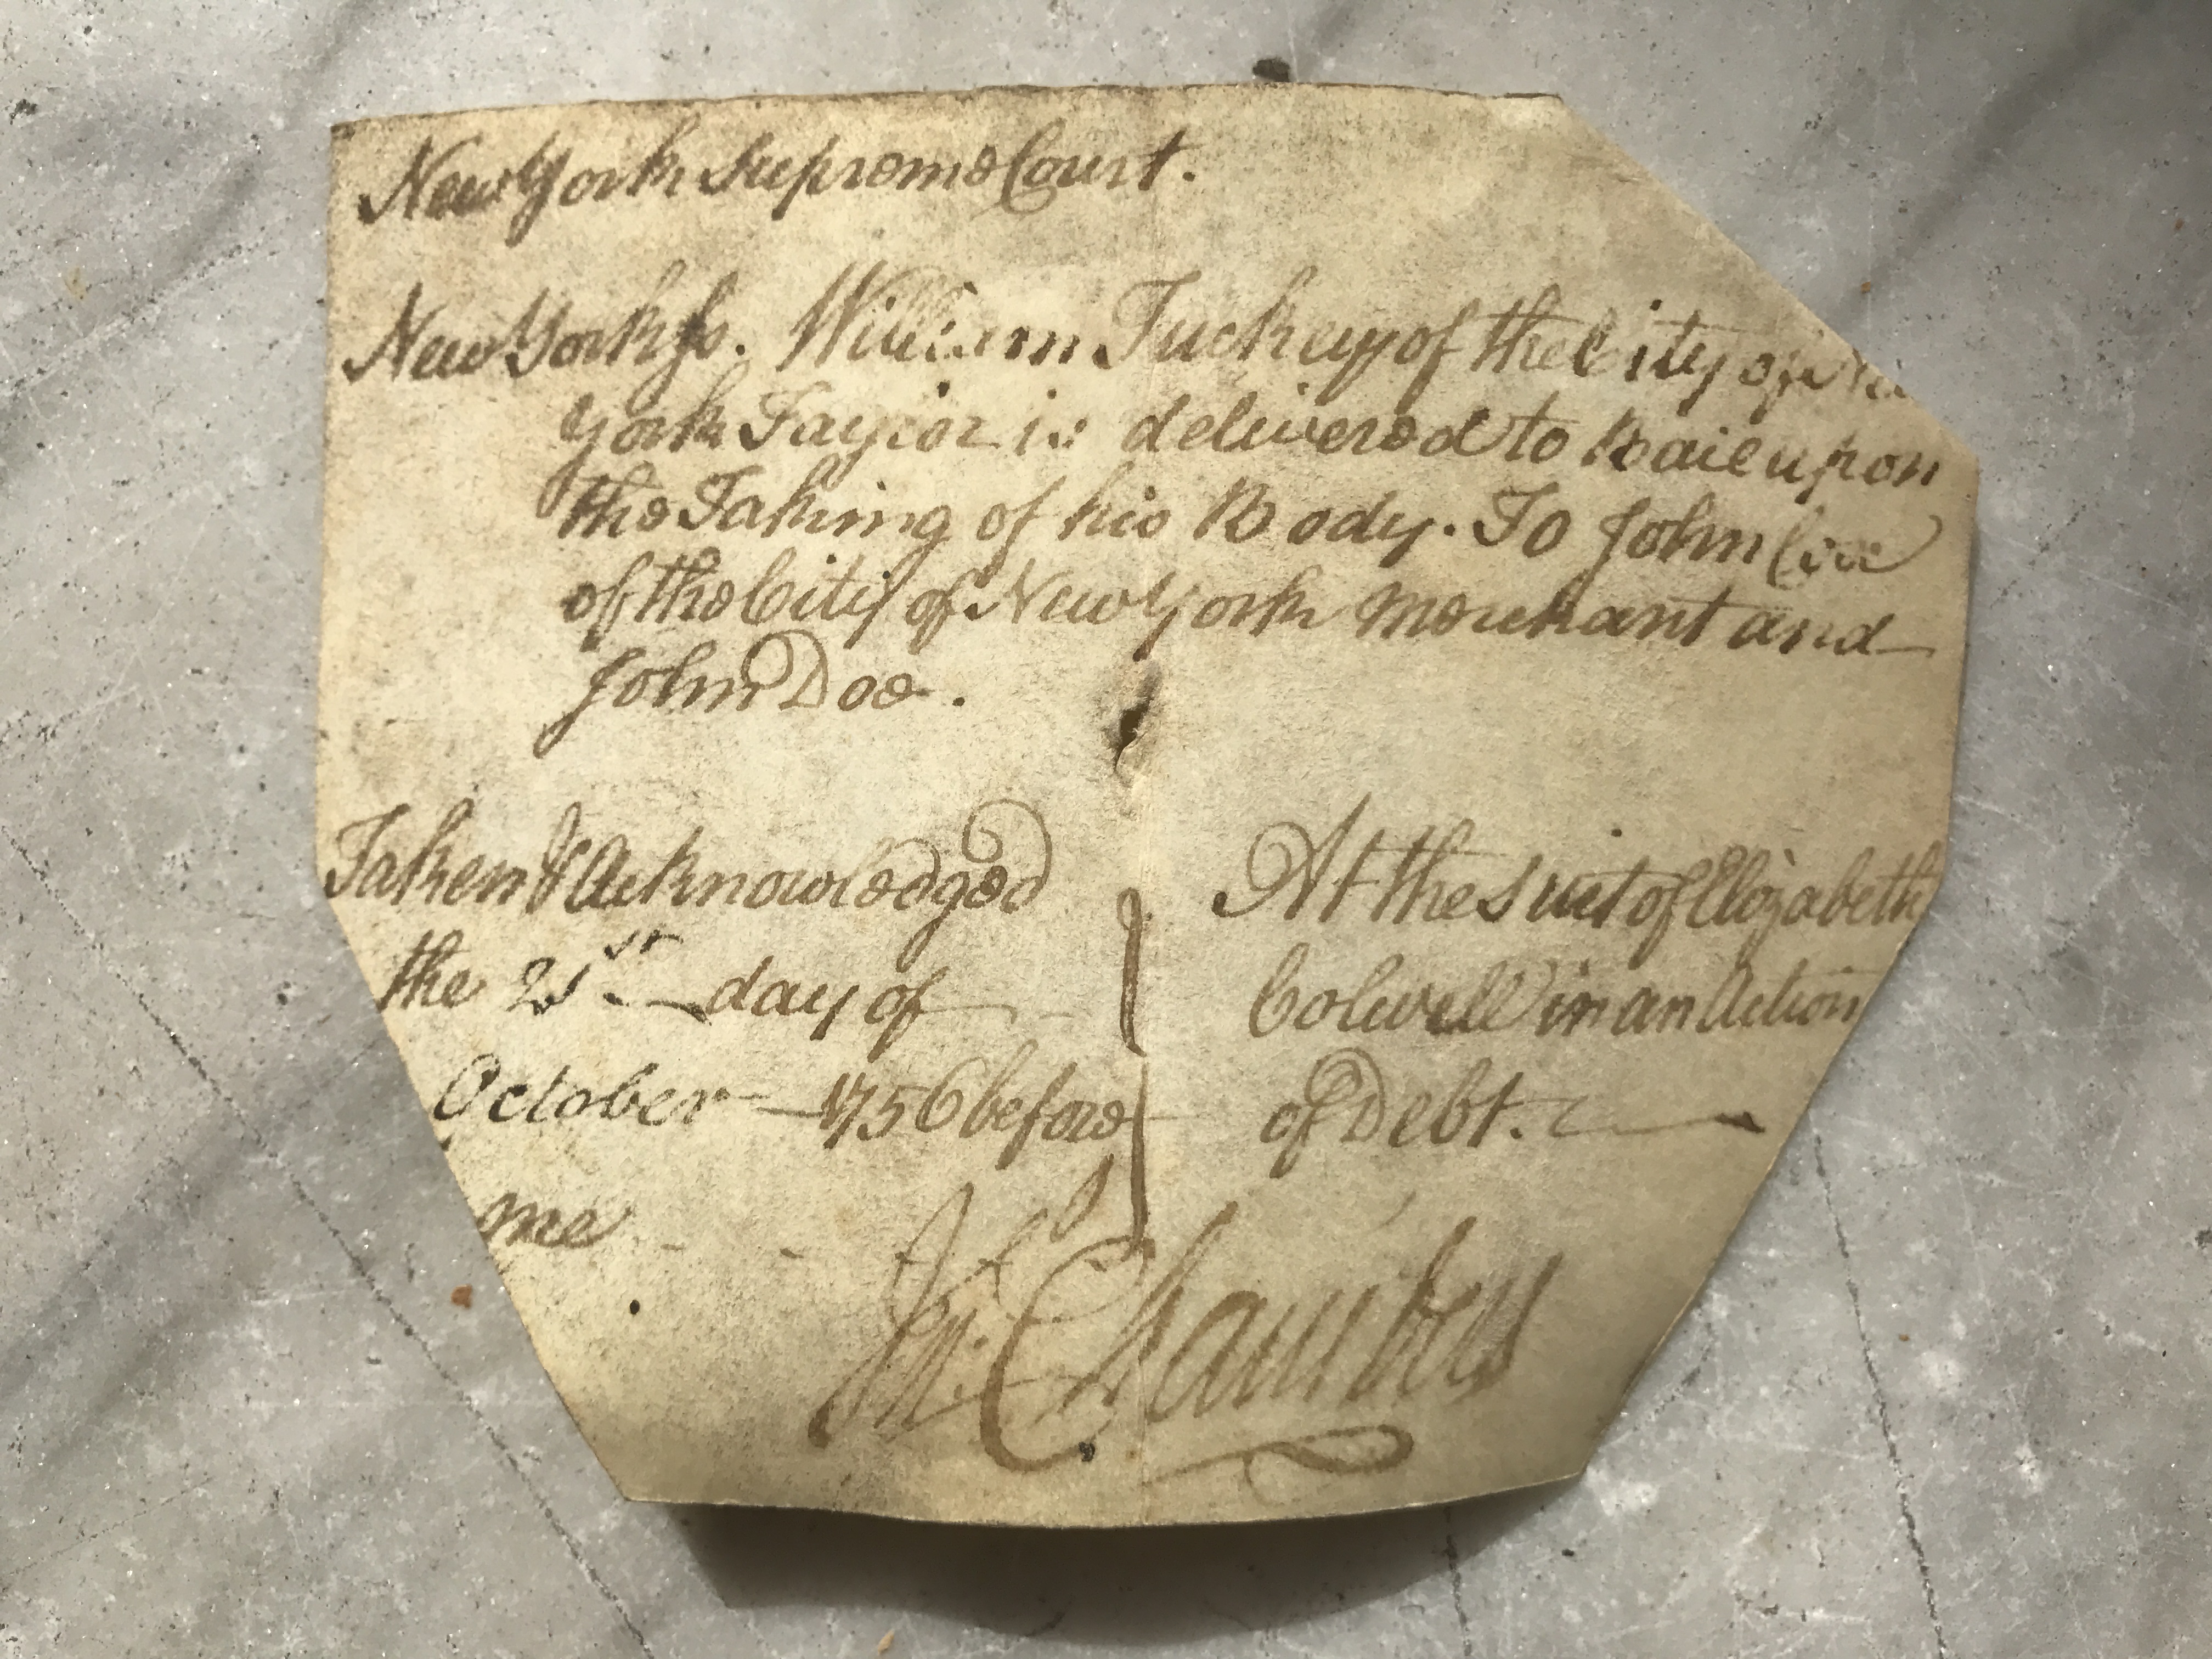 New York Supreme Court.
New York ss. William Tuckey of the City of New
York Taylor is delivered to Bail upon
the Taking of his Body. To John
of the City of New York Merchant and
John Doe.
Taken & Acknowledged
the 21st day of
October 1756 before
me
At the suit of Elizabeth
Colwell in an Action
of Debt.
Jn: Chambers